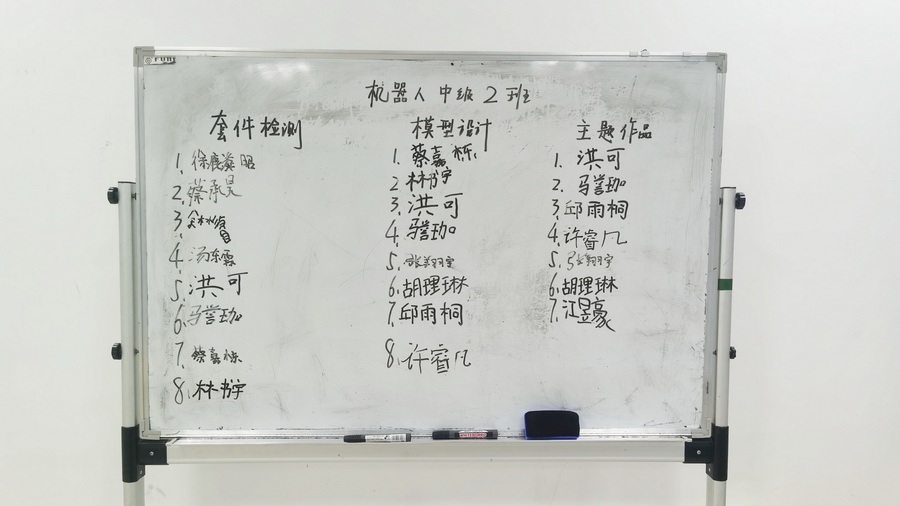 机器人中级2班
套件检测
1. 徐宸 昭
2. 蔡承昊
3.
4. 汤东霖
5. 洪可
6. 马誉珈
7. 蔡嘉栎
8. 林书宇
模型设计
1. 蔡嘉栎
2 林书宇
3. 洪可
4. 马誉珈
5. 张翔宇
6. 胡理琳
7. 邱雨桐
8. 许睿凡
主题作品
1. 洪可
2. 马誉珈
3. 邱雨桐
4. 许睿凡
5. 张翔宇
6. 胡理琳
7. 江昱豪